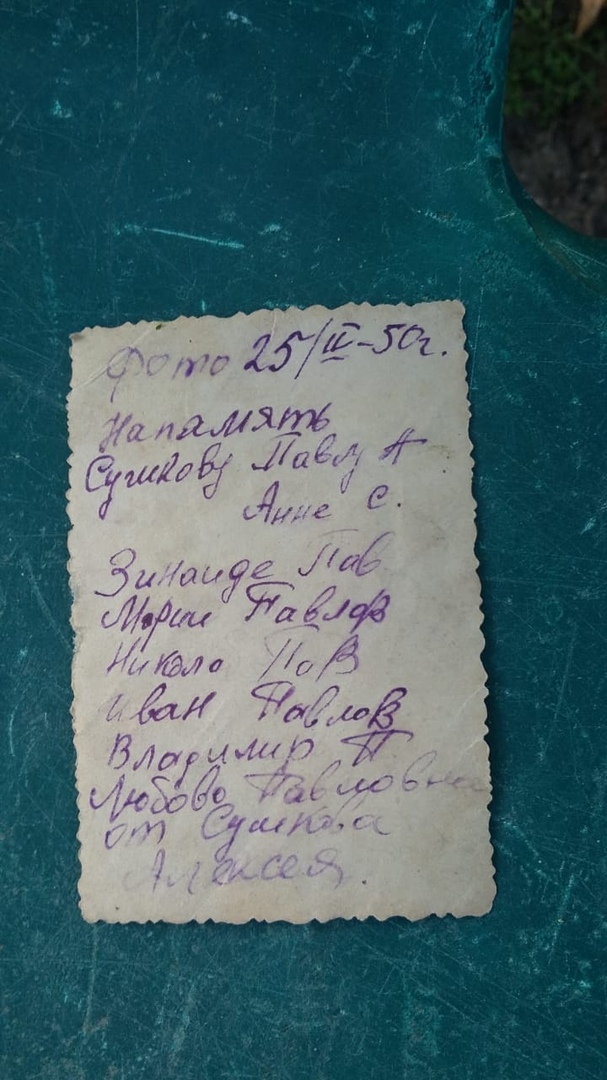 Фото 25/II-50г.
Напамять
Сушкову Павлу А
Анне С.
Зинаиде Пав
Марии Павлов
Никола Пав
Иван Павлов
Владимир П
Любовь Павловна
от Сушкова
Алексея.